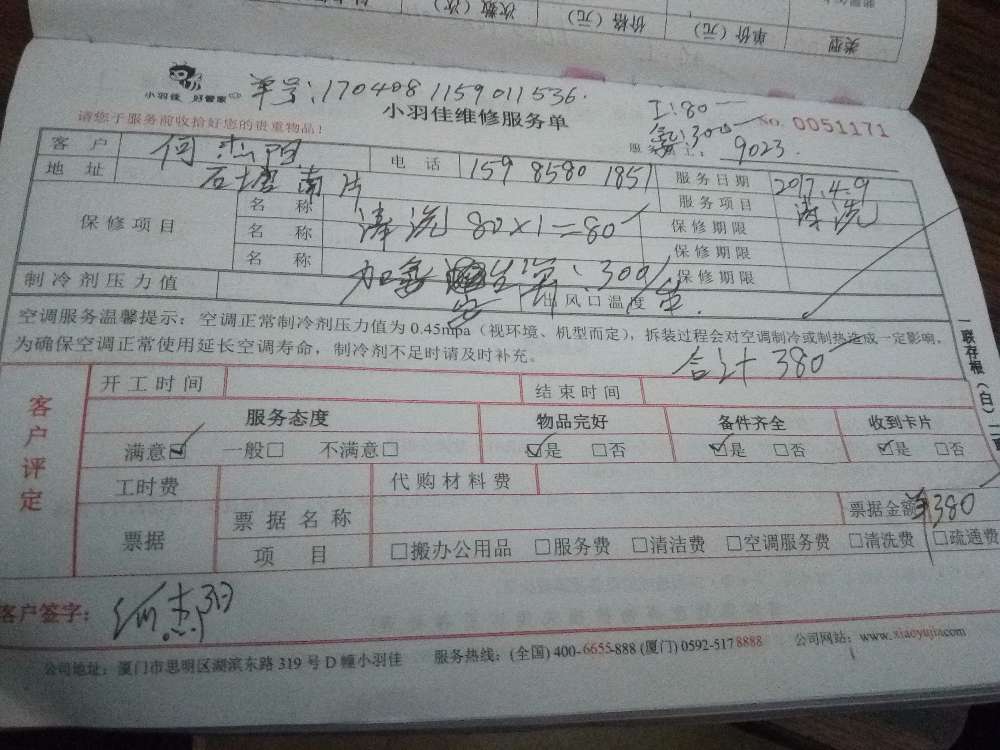 类型 单价（元） 价格（元） 次数（次）
小羽佳 好管家
单号:1704081159011536.
工:80
氨:300
请您于服务前收拾好您的贵重物品！
小羽佳维修服务单
NO. 0051171
9023.
客户 何杰阳 电话 159 8580 1851 服务日期 2017.4.9
地址 石塘南片 服务项目 清洗
保修项目 名称 清洗 80×1=80 保修期限
名称 保修期限
名称 加 :300/ 保修期限
制冷剂压力值 出风口温度
空调服务温馨提示：空调正常制冷剂压力值为0.45mpa（视环境、机型而定），拆装过程会对空调制冷或制热造成一定影响，
为确保空调正常使用延长空调寿命，制冷剂不足时请及时补充。
合计380
一联存根（白）
客户评定
开工时间 结束时间
服务态度 物品完好 备件齐全 收到卡片
满意☑ 一般□ 不满意□ ☑是 □否 ☑是 □否 ☑是 □否
工时费 代购材料费
票据 票据名称 票据金额 ¥380
项目 □搬办公用品 □服务费 □清洁费 □空调服务费 □清洗费 □疏通费
客户签字： 何杰阳
公司地址：厦门市思明区湖滨东路319号D幢小羽佳 服务热线：(全国) 400-6655-888 (厦门) 0592-5178888 公司网站：www.xiaoyujia.com